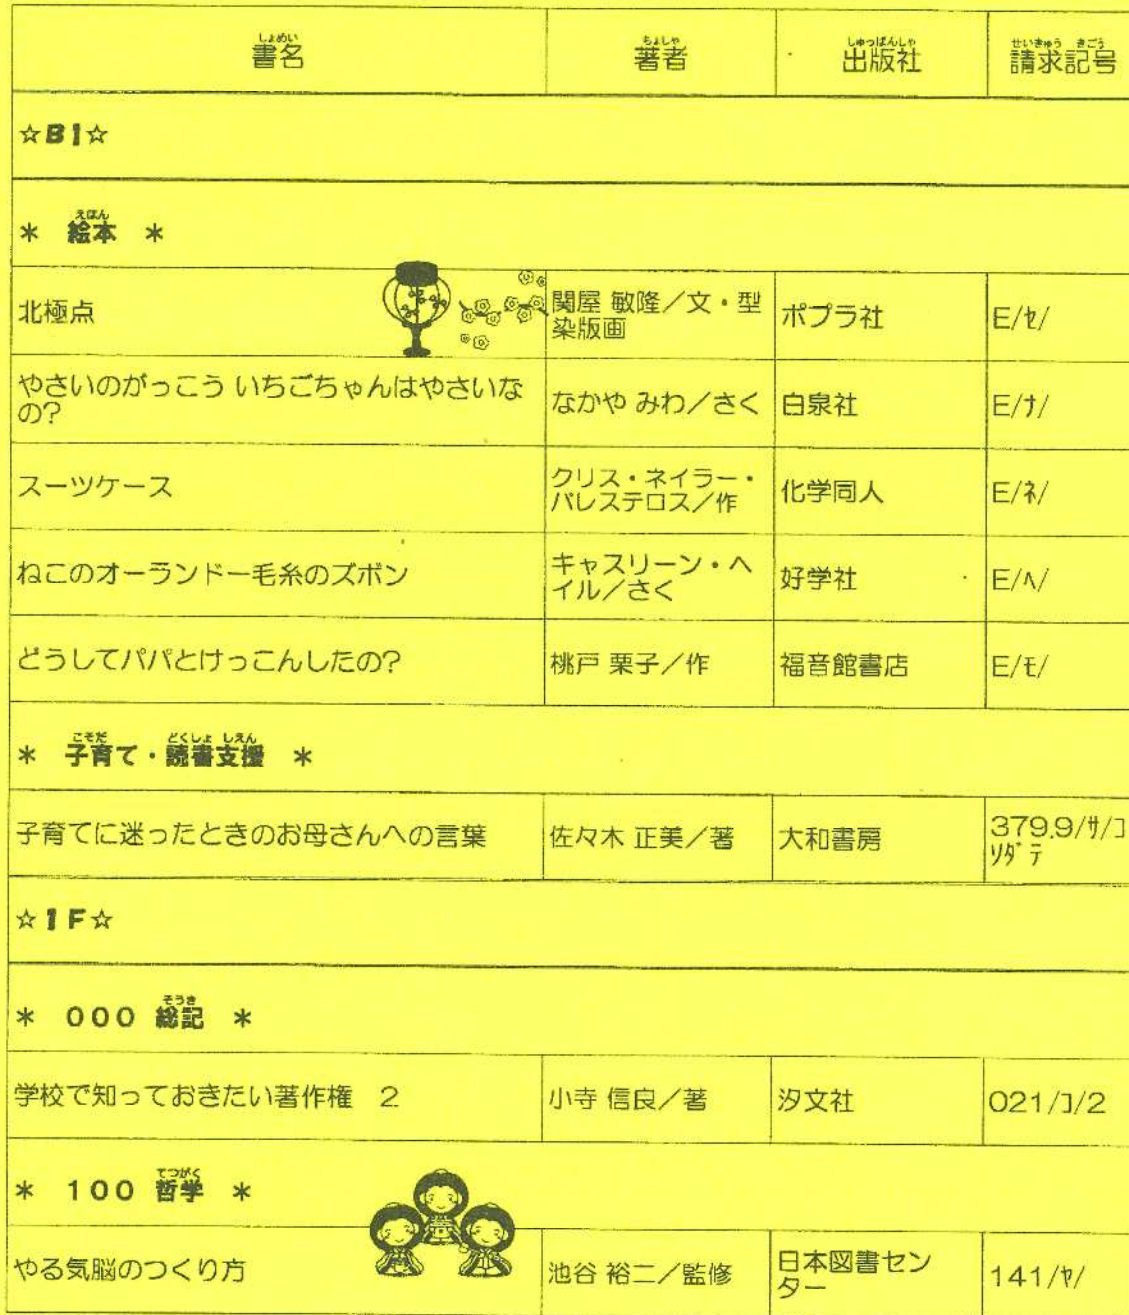 しょめい ちょしゃ しゅっぱんしゃ せいきゅう きごう
書名 著者 出版社 請求記号
☆B1☆
えほん
* 絵本 *
北極点 関屋 敏隆／文・型染版画 ポプラ社 E/ｾ/
やさいのがっこう いちごちゃんはやさいな
の? なかや みわ／さく 白泉社 E/ﾅ/
スーツケース クリス・ネイラー・
バレステロス／作 化学同人 E/ﾈ/
ねこのオーランドー毛糸のズボン キャスリーン・ヘ
イル／さく 好学社 E/ﾍ/
どうしてパパとけっこんしたの? 桃戸 栗子／作 福音館書店 E/ﾓ/
こそだ どくしょ しえん
* 子育て・読書支援 *
子育てに迷ったときのお母さんへの言葉 佐々木 正美／著 大和書房 379.9/ｻ/ｺ
ｿﾀﾞﾃ
☆1F☆
そうき
* 000 総記 *
学校で知っておきたい著作権 2 小寺 信良／著 汐文社 021/ｺ/2
てつがく
* 100 哲学 *
やる気脳のつくり方 池谷 裕二／監修 日本図書セン
ター 141/ﾔ/